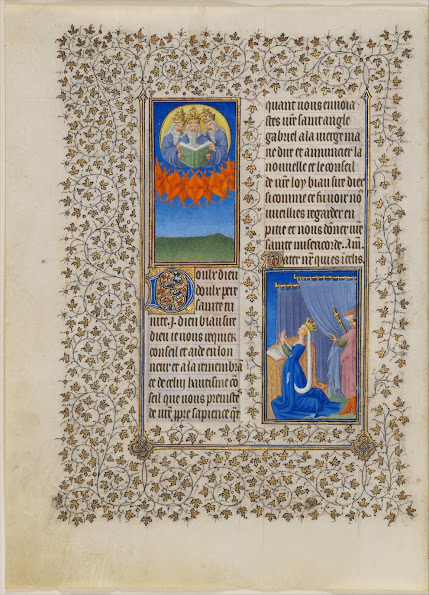 Doulx dieu
doulz pere
sainte tri
nite .j. dieu biau sire
dieu ie uous requier
conseil et aide en lon
neur et a la remembrā
ce de celuy hautisme cō
seil que uous preniste
de vr̄e ꝓpre sapience q̄t
quant uous enuoia
stes vr̄e saint angle
gabriel a la uierge ma
rie dire et annuncier la
nouuelle et le conseil
de nr̄e loy biau sire dieu
si comme ce fu uoir no9
vueillies regarder en
pitie et nous doner vr̄e
sainte misericorde. Am̄.
Pater nr̄ qui es